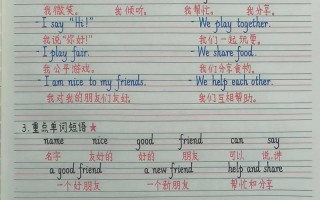 我微笑。 我倾听。 我帮忙。 我分享。
- I say "Hi!" - We play together.
我说"你好!" 我们一起玩耍。
- I play fair. - We share food.
我公平游戏。 我们分享食物。
- I am nice to my friends. - We help each other.
我对我的朋友们友好。 我们互相帮助。
3.重点单词短语★
name nice good friend can say
名字 友好的 好的 朋友 可以 说;讲
a good friend a new friend help and share
一个好朋友 一个新朋友 帮忙和分享